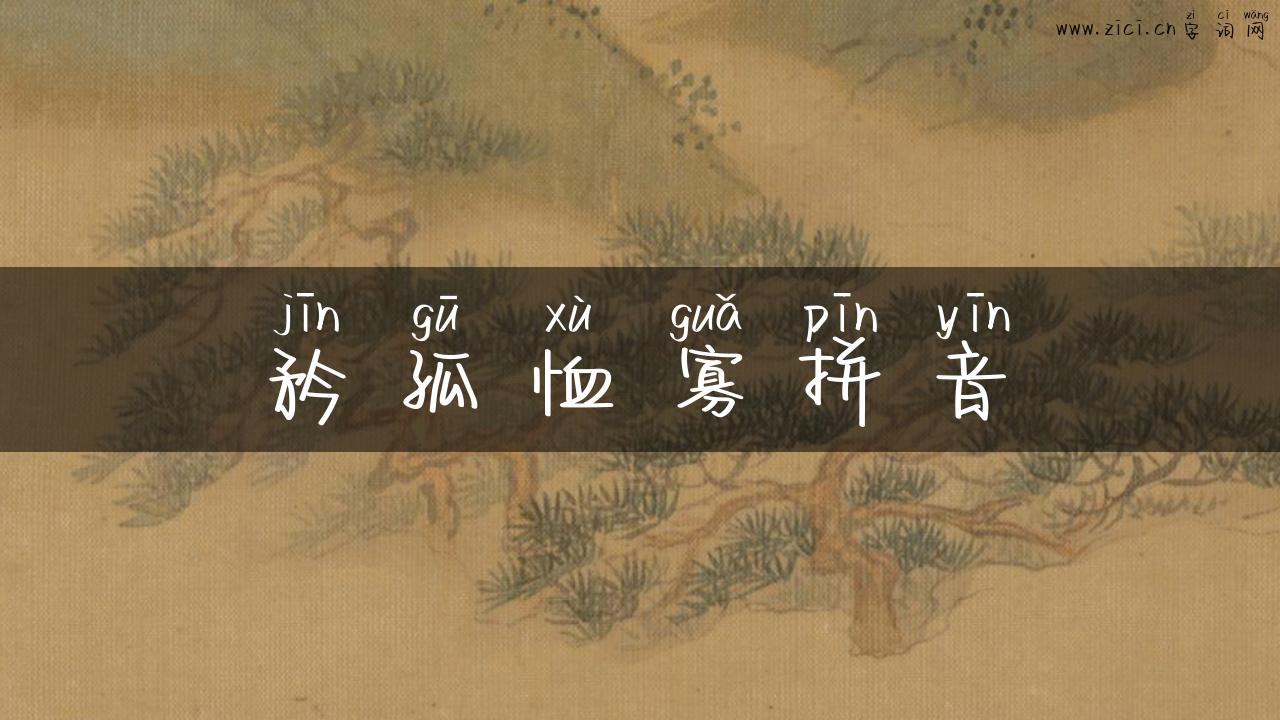 zì cí wǎng
www.zici.cn字词网
jīn gū xù guǎ pīn yīn
矜孤恤寡拼音